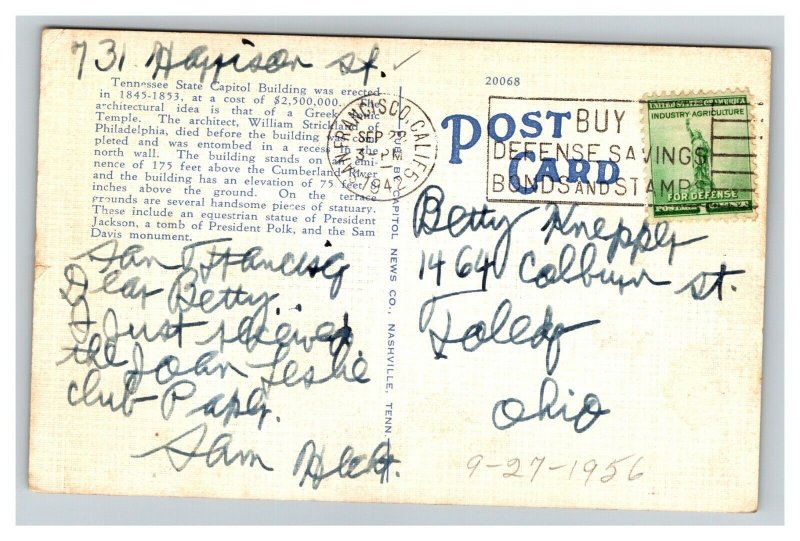 731 Harrison St.
Tennessee State Capitol Building was erected
in 1845-1853, at a cost of $2,500,000. The
architectural idea is that of a Greek Ionic
Temple. The architect, William Strickland of
Philadelphia, died before the building was com-
pleted and was entombed in a recess in the
north wall. The building stands on an emi-
nence of 175 feet above the Cumberland River
and the building has an elevation of 75 feet
inches above the ground. On the terrace
grounds are several handsome pieces of statuary.
These include an equestrian statue of President
Jackson, a tomb of President Polk, and the Sam
Davis monument.
San Francisco
Dear Betty.
I Just received
the Joan Leslie
club Paper.
Sam Hecht.
PUB. BY CAPITOL NEWS CO., NASHVILLE, TENN.
20068
POST CARD
SAN FRANCISCO, CALIF.
SEP 29
3 PM
194
BUY
DEFENSE SAVINGS
BONDS AND STAMPS
UNITED STATES OF AMERICA
INDUSTRY AGRICULTURE
FOR DEFENSE
POSTAGE 1 CENT
Betty Knepper
1464 Colburn St.
Toledo
Ohio
9-27-1956